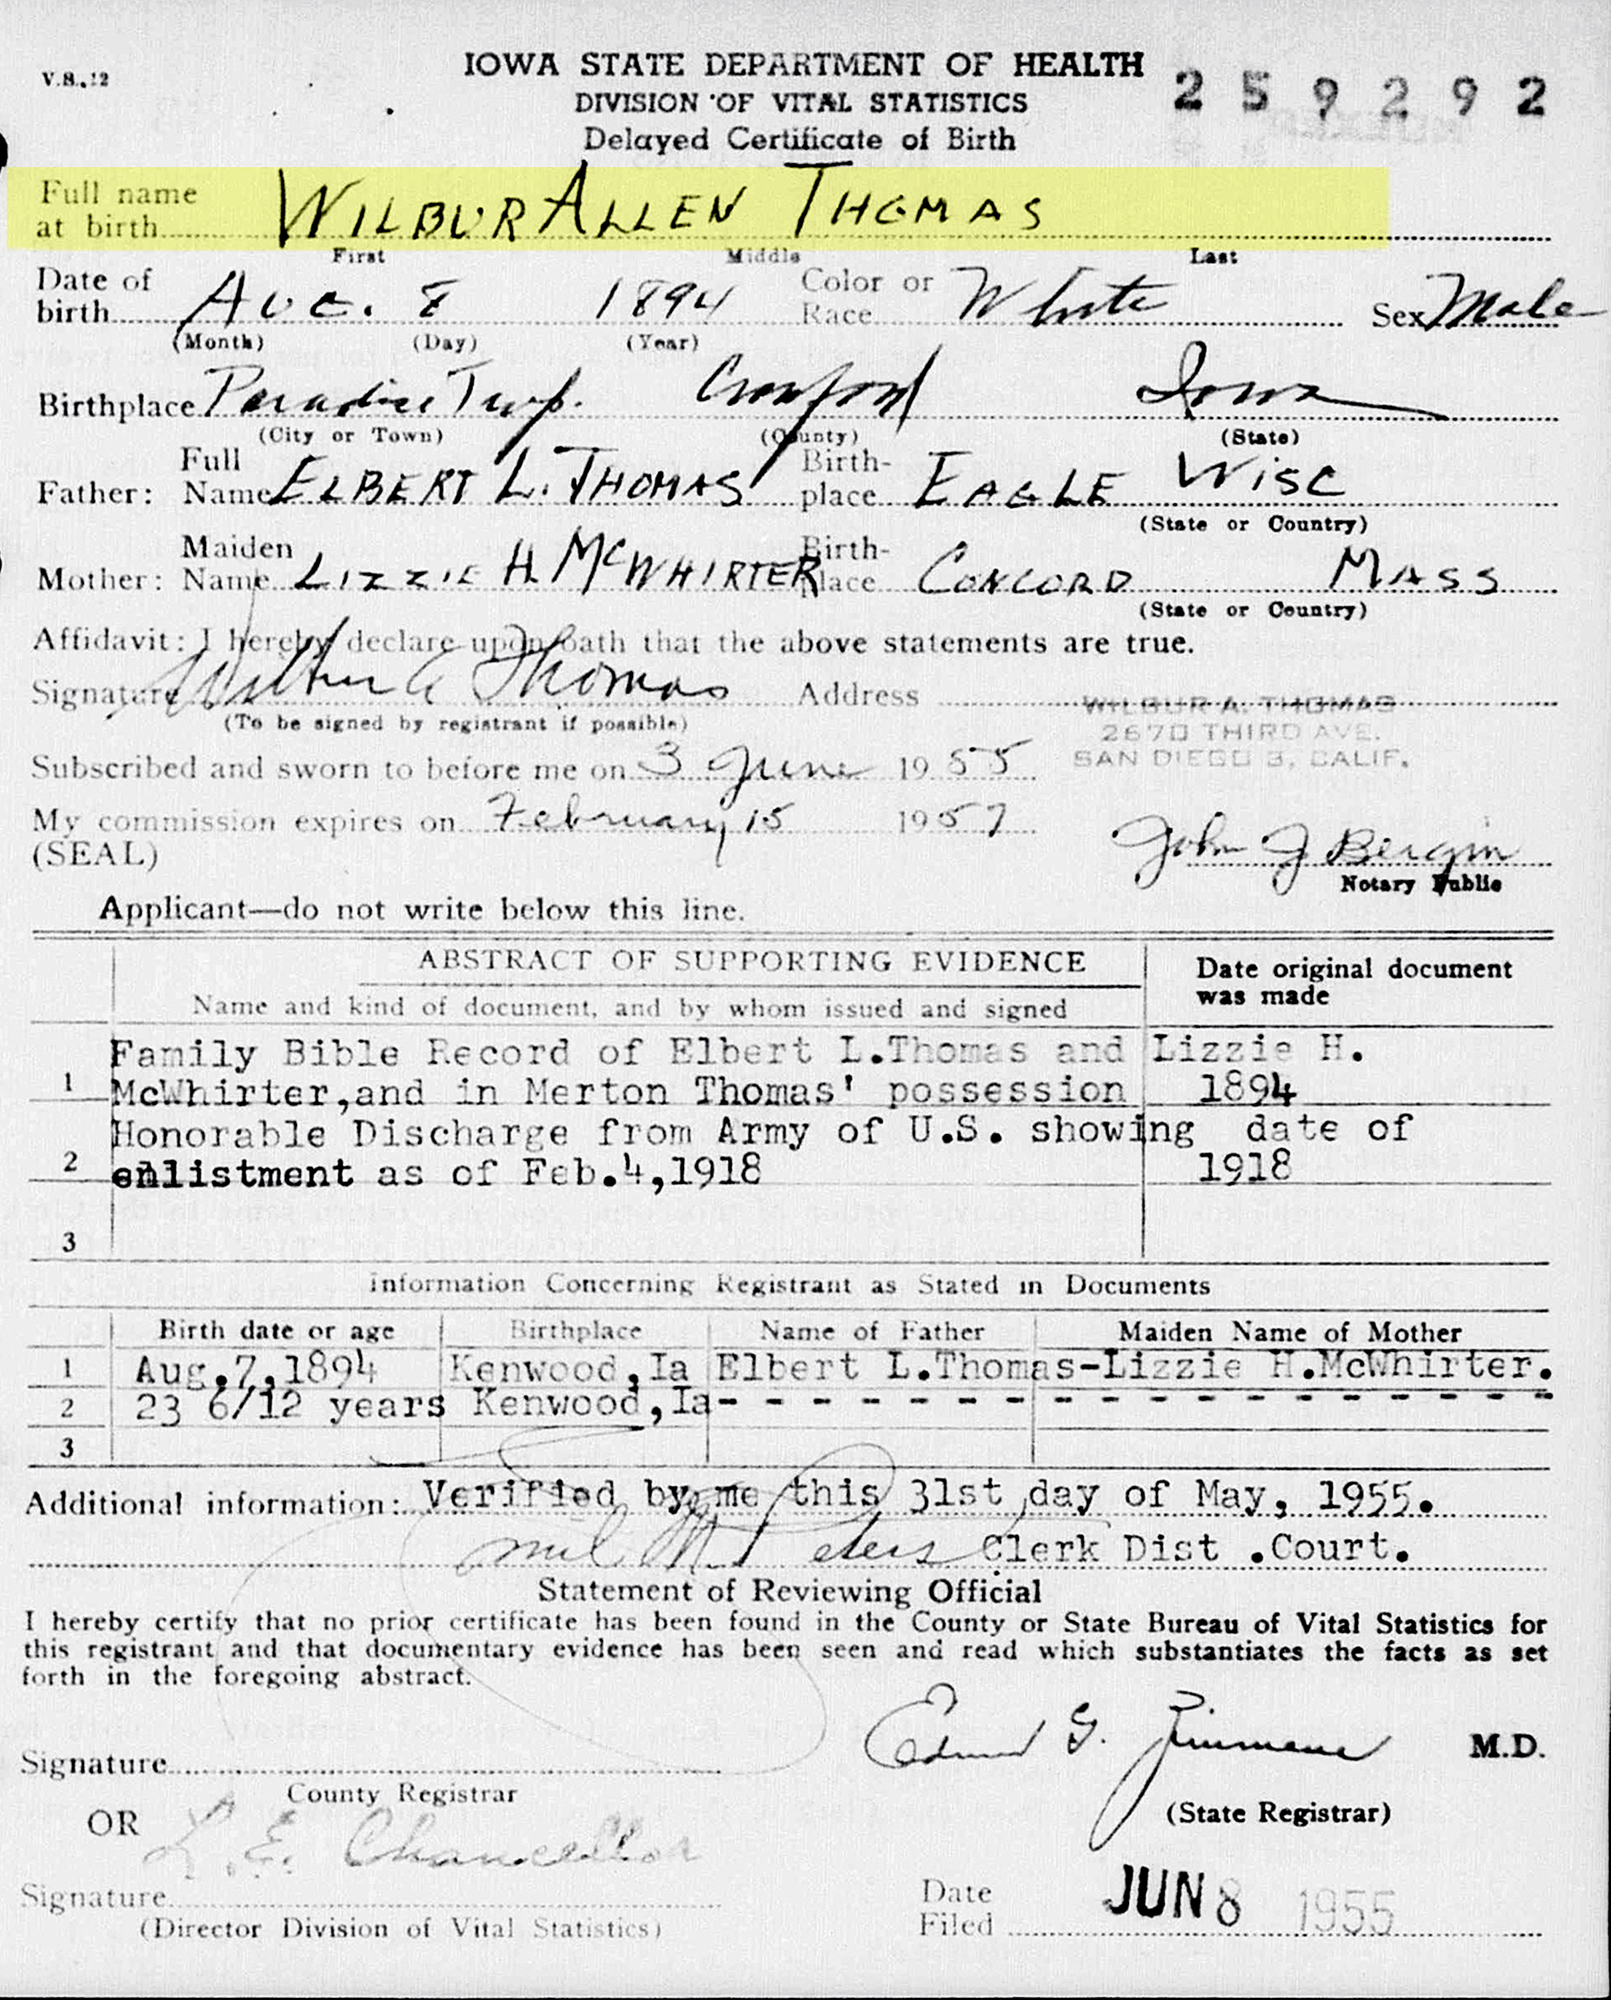 V.S..12
IOWA STATE DEPARTMENT OF HEALTH
259292
DIVISION OF VITAL STATISTICS
Delayed Certificate of Birth
Full name at birth WILBUR ALLEN THOMAS
First Middle Last
Date of birth AUG. 8 1894 Color or Race White Sex Male
(Month) (Day) (Year)
Birthplace Paradise Twp. Crawford Iowa
(City or Town) (County) (State)
Father: Full Name ELBERT L. THOMAS Birthplace EAGLE WISC
(State or Country)
Mother: Maiden Name LIZZIE H. MCWHIRTER Birthplace CONCORD MASS
(State or Country)
Affidavit: I hereby declare upon oath that the above statements are true.
Signature Wilbur A Thomas Address WILBUR A. THOMAS
(To be signed by registrant if possible) 2670 THIRD AVE.
SAN DIEGO 3, CALIF.
Subscribed and sworn to before me on 3 June 1955
My commission expires on February 15 1957
(SEAL) John J Bergin
Notary Public
Applicant—do not write below this line.
ABSTRACT OF SUPPORTING EVIDENCE
Date original document was made
Name and kind of document, and by whom issued and signed
Family Bible Record of Elbert L.Thomas and Lizzie H.
1 McWhirter,and in Merton Thomas' possession 1894
Honorable Discharge from Army of U.S. showing date of
2 enlistment as of Feb.4,1918 1918
3
Information Concerning Registrant as Stated in Documents
Birth date or age Birthplace Name of Father Maiden Name of Mother
1 Aug.7,1894 Kenwood,Ia Elbert L.Thomas-Lizzie H.McWhirter.
2 23 6/12 years Kenwood,Ia- - - - - - - - - - - - - - - - - -
3
Additional information: Verified by me this 31st day of May, 1955.
M. Peters Clerk Dist .Court.
Statement of Reviewing Official
I hereby certify that no prior certificate has been found in the County or State Bureau of Vital Statistics for
this registrant and that documentary evidence has been seen and read which substantiates the facts as set
forth in the foregoing abstract.
Signature M.D.
County Registrar
(State Registrar)
OR
L. E. Chancellor
Signature
(Director Division of Vital Statistics)
Date Filed JUN 8 1955